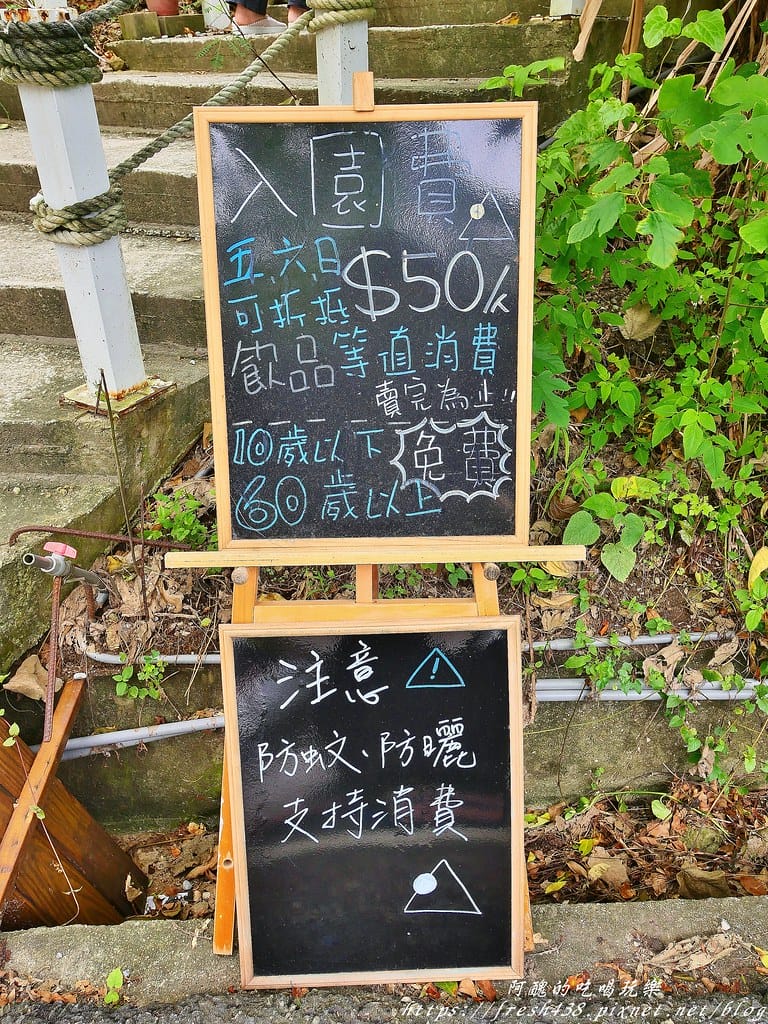 入園費
五、六、日 $50/人
可折抵
飲品等值消費
賣完為止!!
10歲以下 免費
60歲以上
注意
防蚊、防曬
支持消費
阿醜的吃喝玩樂
https://fresh438.pixnet.net/blog